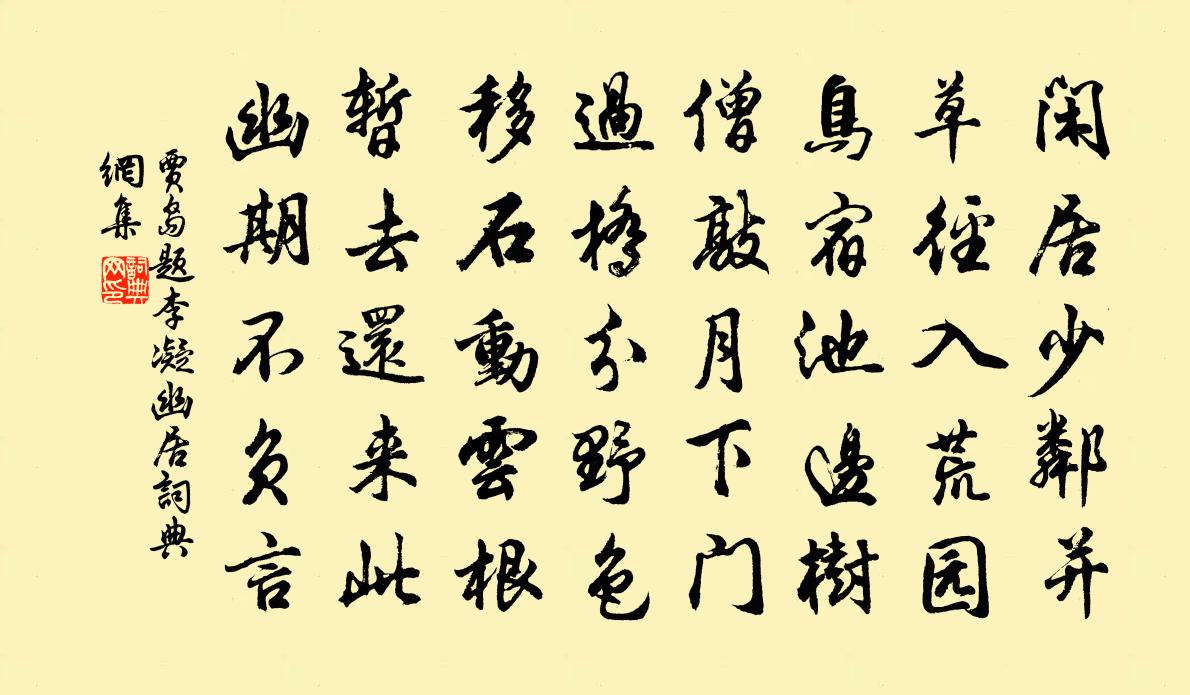 閑居少鄰并
草徑入荒园
鳥宿池邊樹
僧敲月下门
過橋分野色
移石動雲根
暫去還来此
幽期不负言
賈島题李凝幽居詞典
網集
詞典
网印